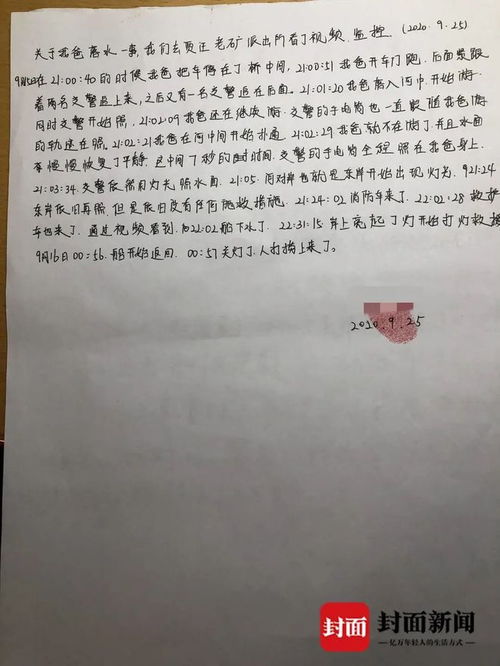 关于我爸落水一事,我们去贾汪老矿派出所看了视频监控.(2020.9.25)
9月15日在21:00:40的时候我爸把车停在了桥中间,21:00:51我爸开车门跑,后面紧跟
着两名交警追上来,之后又有一名交警追在后面。21:01:20我爸落入河中.开始游.
同时交警开始照,21:02:09我爸还在继续游.交警的手电筒也一直跟随我爸游
的轨迹在照.21:02:21我爸在河中间开始扑通.21:02:29我爸就不在游了并且水面
慢慢恢复了平静 这中间7秒的时间.交警的手电筒全程照在我爸身上.
21:03:34.交警依照用灯光照水面.21:05.河对岸也就是东岸开始出现灯光.921:24
东岸依旧再照.但是依旧没有任何施救措施.21:24:02消防车来了.22:02:28救护
车也来了.通过视频看到.22:02船下水了.22:31:15岸上亮起了灯开始打灯救援
9月16日00:56.船开始返回.00:57关灯了.人打捞上来了。
2020.9.25
封面
封面新闻
亿万年轻人的生活方式